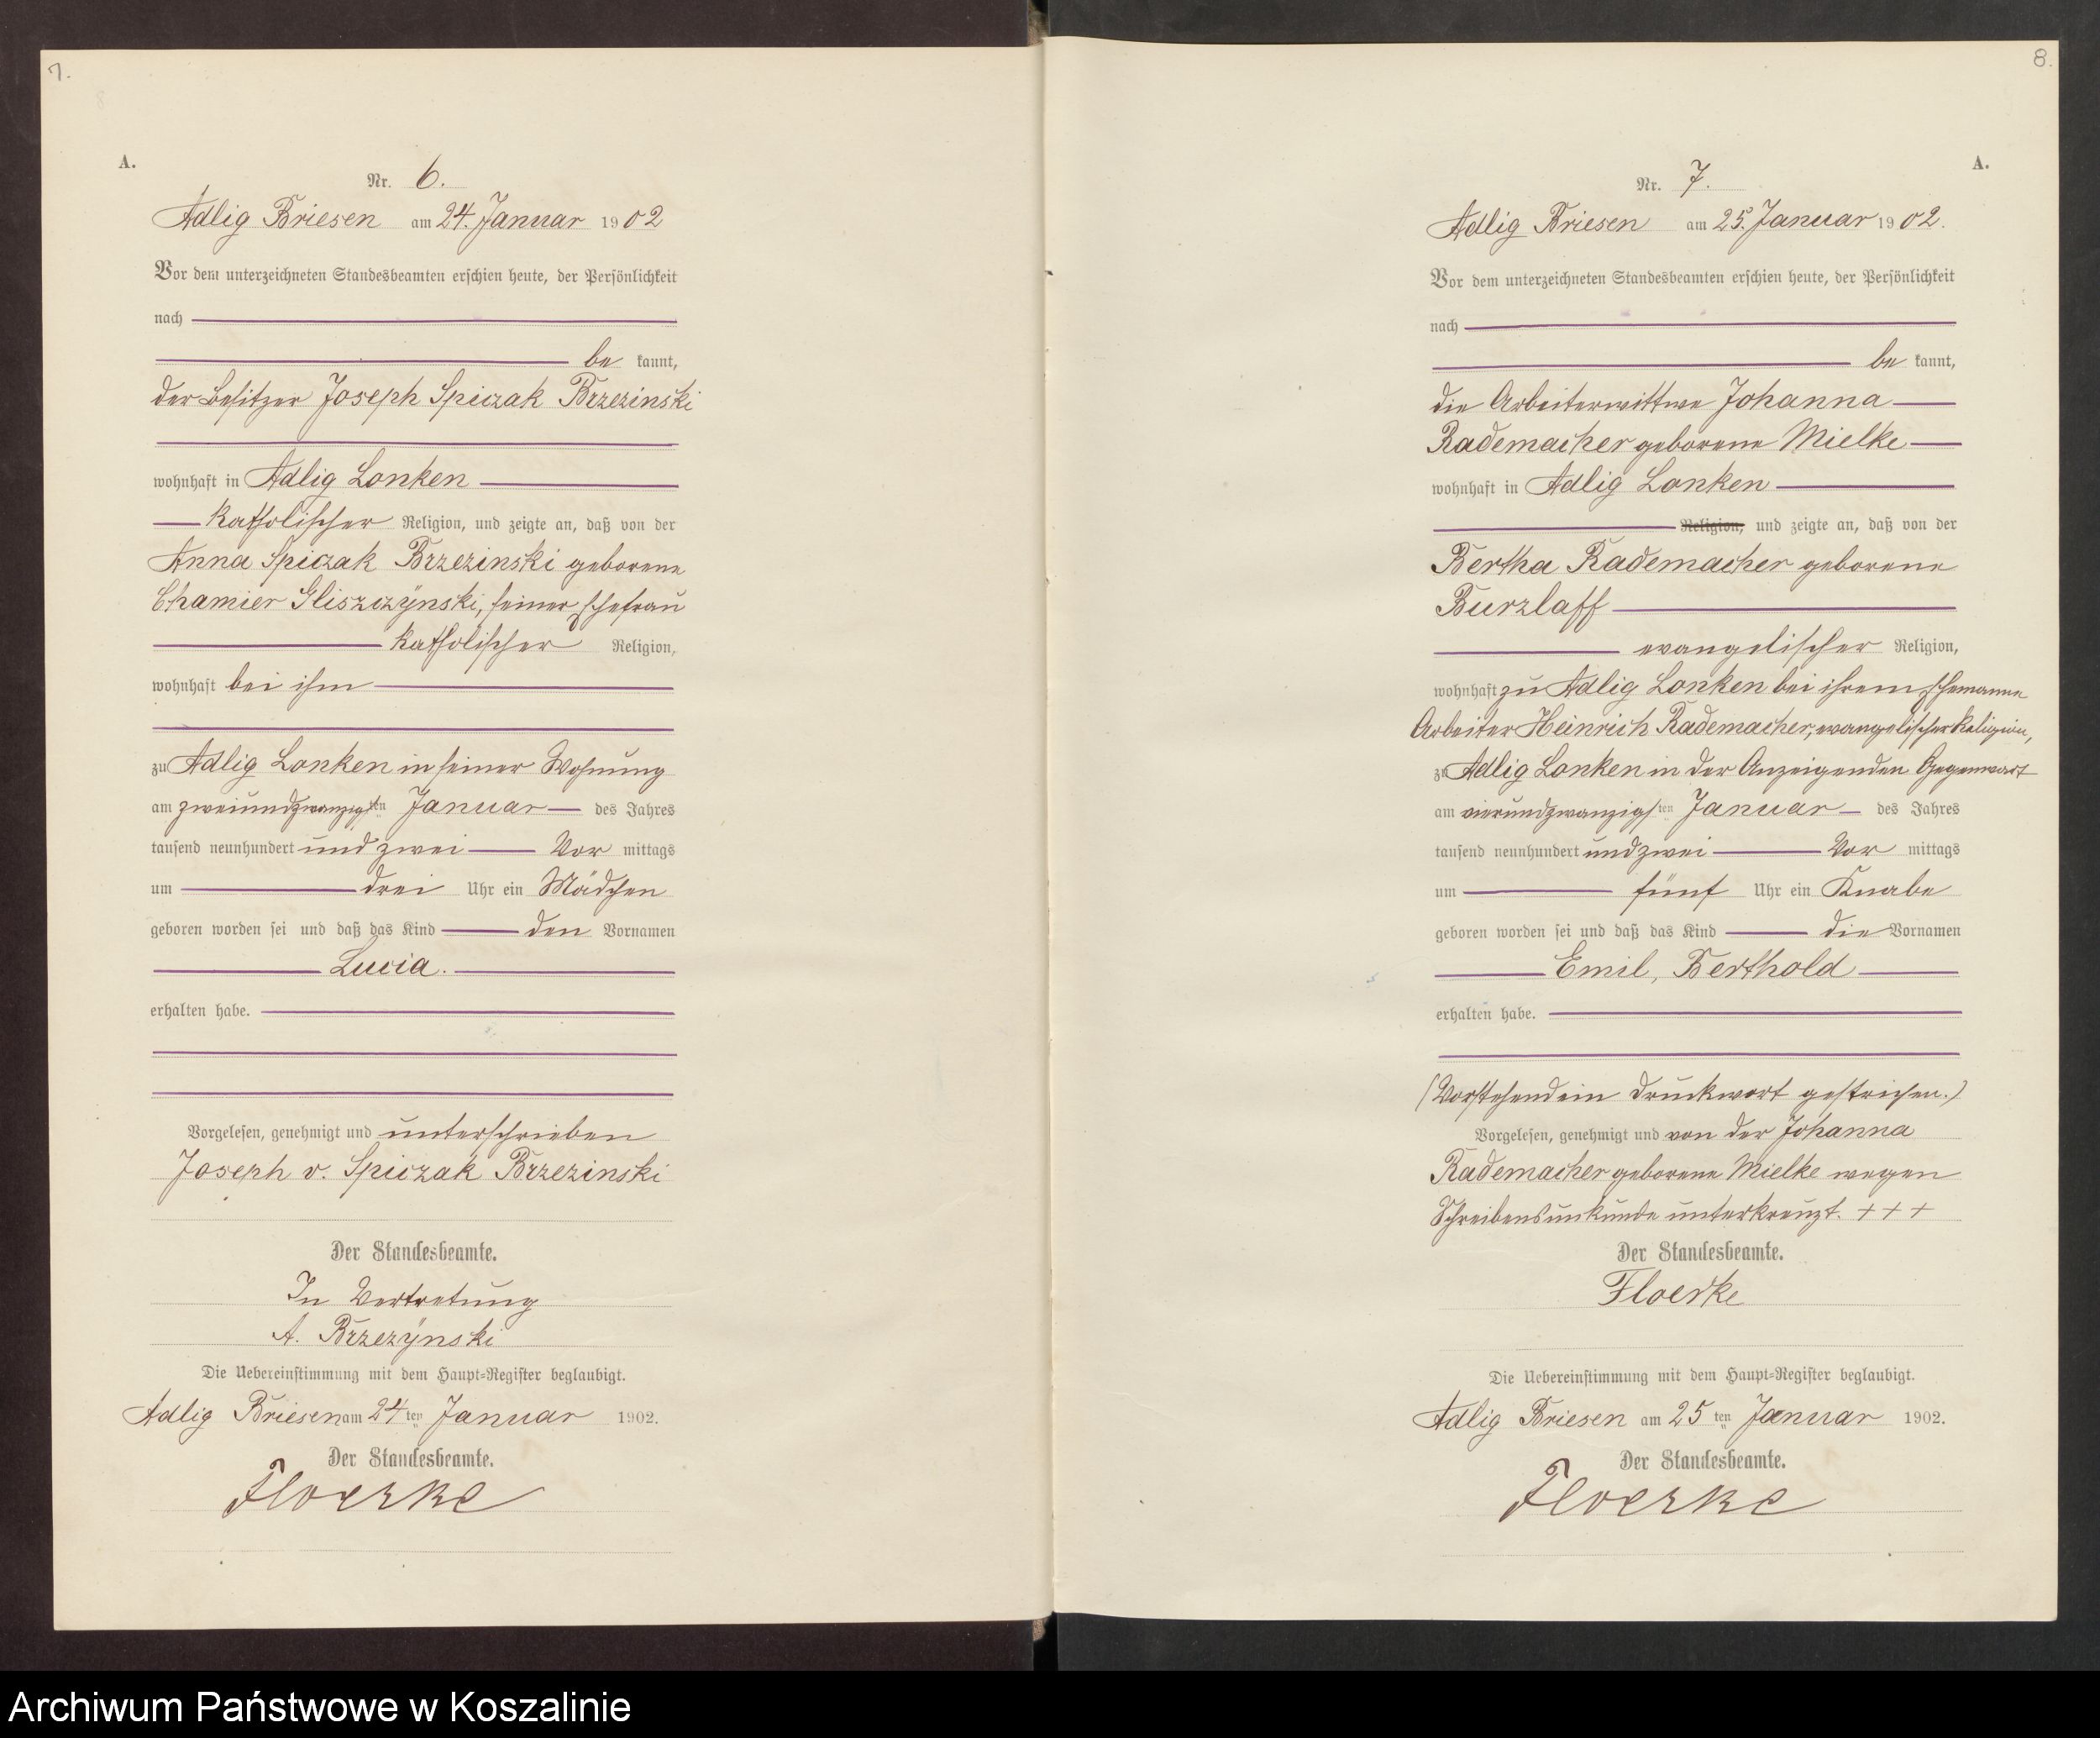 7.
A.
Nr. 6.
Adlig Briesen am 24. Januar 1902
Vor dem unterzeichneten Standesbeamten erschien heute, der Persönlichkeit
nach
be kannt,
der Besitzer Joseph Spiczak Brzezinski
wohnhaft in Adlig Lonken
katholischer Religion, und zeigte an, daß von der
Anna Spiczak Brzezinski geborene
Chamier Gliszczÿnski, seiner Ehefrau
katholischer Religion,
wohnhaft bei ihm
zu Adlig Lonken in seiner Wohnung
am zweiundzwanzigsten Januar des Jahres
tausend neunhundert und zwei Vor mittags
um drei Uhr ein Mädchen
geboren worden sei und daß das Kind den Vornamen
Lucia.
erhalten habe.
Vorgelesen, genehmigt und unterschrieben
Joseph v. Spiczak Brzezinski
Der Standesbeamte.
In Vertretung
A. Brzezÿnski
Die Uebereinstimmung mit dem Haupt-Register beglaubigt.
Adlig Briesen am 24ten Januar 1902.
Der Standesbeamte.
Floerke
8.
A.
Nr. 7.
Adlig Briesen am 25. Januar 1902.
Vor dem unterzeichneten Standesbeamten erschien heute, der Persönlichkeit
nach
be kannt,
die Arbeiterwittwe Johanna
Rademacher geborene Mielke
wohnhaft in Adlig Lonken
Religion, und zeigte an, daß von der
Bertha Rademacher geborene
Burzlaff
evangelischer Religion,
wohnhaft zu Adlig Lonken bei ihrem Ehemanne
Arbeiter Heinrich Rademacher, evangelischer Religion,
zu Adlig Lonken in der Anzeigenden Gegenwart
am vierundzwanzigsten Januar des Jahres
tausend neunhundert undzwei Vor mittags
um fünf Uhr ein Knabe
geboren worden sei und daß das Kind die Vornamen
Emil, Berthold
erhalten habe.
(Vorstehend ein Druckwort gestrichen.)
Vorgelesen, genehmigt und von der Johanna
Rademacher geborene Mielke wegen
Schreibensunkunde unterkreuzt. + + +
Der Standesbeamte.
Floerke
Die Uebereinstimmung mit dem Haupt-Register beglaubigt.
Adlig Briesen am 25ten Januar 1902.
Der Standesbeamte.
Floerke
Archiwum Państwowe w Koszalinie